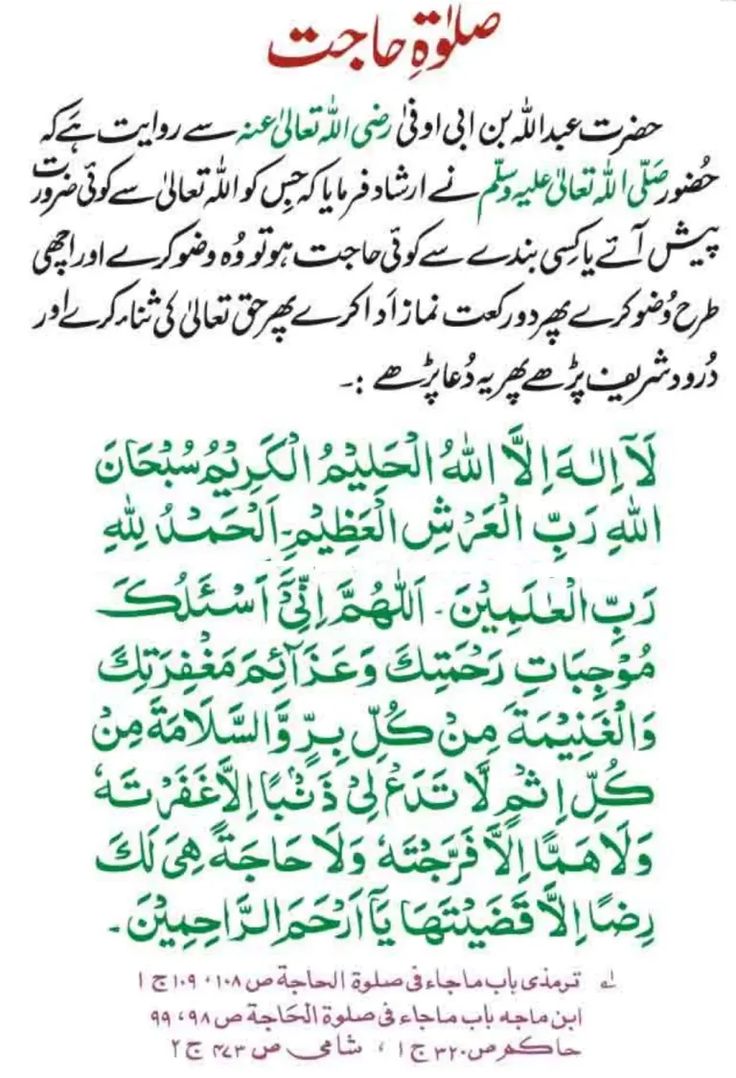 صلوٰۃِ حاجت
حضرت عبداللہ بن ابی اوفیٰ رضی اللہ تعالیٰ عنہ سے روایت ہے کہ
حُضور صَلَّی اللہ تعالیٰ علیہ وسلَّم نے ارشاد فرمایا کہ جِس کو اللہ تعالیٰ سے کوئی ضرورت
پیش آئے یا کِسی بندے سے کوئی حاجت ہو تو وُہ وضو کرے اور اچھی
طرح وُضو کرے پھر دو رکعت نماز اَدا کرے پھر حق تعالیٰ کی ثناء کرے اور
دُرود شریف پڑھے پھر یہ دُعا پڑھے :۔
لَآ اِلٰهَ اِلَّا اللهُ الْحَلِيْمُ الْكَرِيْمُ سُبْحَانَ
اللهِ رَبِّ الْعَرْشِ الْعَظِيْمِ۔ اَلْحَمْدُ لِلّٰهِ
رَبِّ الْعٰلَمِيْنَ۔ اَللّٰهُمَّ اِنِّيْٓ اَسْئَلُكَ
مُوْجِبَاتِ رَحْمَتِكَ وَعَزَآئِمَ مَغْفِرَتِكَ
وَالْغَنِيْمَةَ مِنْ كُلِّ بِرٍّ وَّالسَّلَامَةَ مِنْ
كُلِّ اِثْمٍ لَّا تَدَعْ لِيْ ذَنْۢبًا اِلَّا غَفَرْتَهٗ
وَلَا هَمًّا اِلَّا فَرَّجْتَهٗ وَلَا حَاجَةً هِيَ لَكَ
رِضًا اِلَّا قَضَيْتَهَا يَآ اَرْحَمَ الرَّاحِمِيْنَ۔
لہ ترمذی باب ماجاء فی صلوۃ الحاجة ص ۱۰۸، ۱۰۹ ج ۱
ابن ماجہ باب ماجاء فی صلوۃ الحَاجة ص ۹۸، ۹۹
حاکم ص ۳۲۰ ج ۱ ، شامی ص ۴۷۳ ج ۲